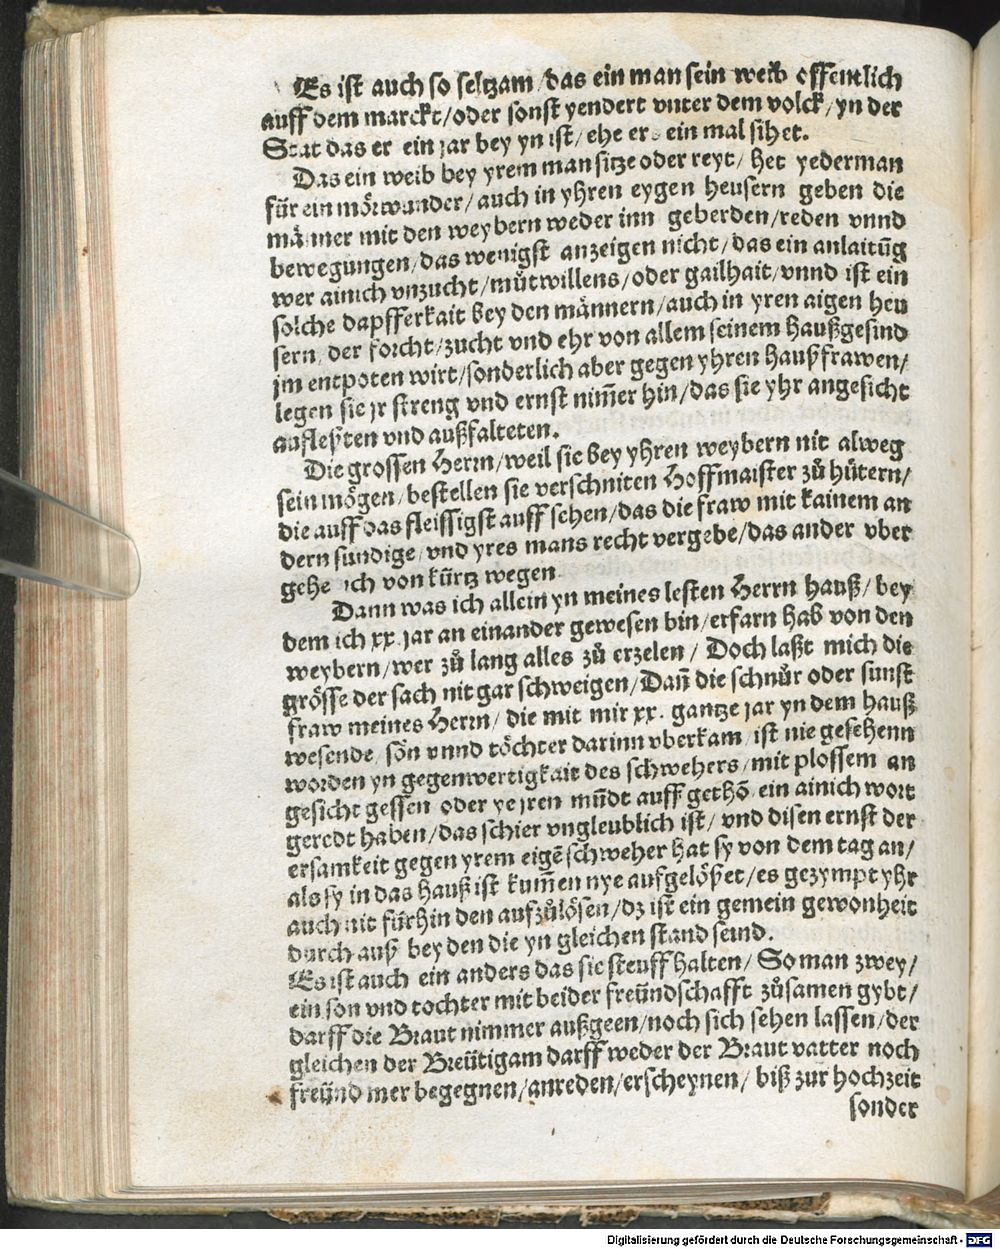 Es ist auch so seltzam/das ein man sein weib offentlich
auff dem marckt/oder sonst yendert vnter dem volck/yn der
Stat das er ein jar bey yn ist/ehe ers ein mal sihet.
Das ein weib bey yrem man sitze oder reyt/het yederman
für ein mörwunder/auch in yhren eygen heusern geben die
männer mit den weybern weder inn geberden/reden vnnd
bewegungen/das wenigst anzeigen nicht/das ein anlaitūg
wer ainich vnzucht/můtwillens/oder gailhait/vnnd ist ein
solche dapfferkait bey den männern/auch in yren aigen heu
sern/der forcht/zucht vnd ehr von allem seinem haußgesind
jm entpoten wirt/sonderlich aber gegen yhren haußfrawen/
legen sie jr streng vnd ernst nim̄er hin/das sie yhr angesicht
aufleßten vnd außfalteten.
Die grossen Herrn/weil sie bey yhren weybern nit alweg
sein mögen/bestellen sie verschniten Hoffmaister zů hütern/
die auff das fleissigst auff sehen/das die fraw mit kainem an
dern sundige/vnd yres mans recht vergebe/das ander vber
gehe ich von kürtz wegen
Dann was ich allein yn meines lesten Herrn hauß/bey
dem ich xx. jar an einander gewesen bin/erfarn hab von den
weybern/wer zů lang alles zů erzelen/Doch laßt mich die
grösse der sach nit gar schweigen/Dañ die schnůr oder sunst
fraw meines Herrn/die mit mir xx. gantze jar yn dem hauß
wesende/sön vnnd töchter darinn vberkam/ist nie gesehenn
worden yn gegenwertigkait des schwehers/mit plossem an
gesicht gessen oder ye jren mūdt auff gethō ein ainich wort
geredt haben/das schier vngleublich ist/vnd disen ernst der
ersamkeit gegen yrem eigē schweher hat sy von dem tag an/
als sy in das hauß ist kum̄en nye aufgelößet/es gezympt yhr
auch nit fürhin den aufzůlösen/dz ist ein gemein gewonheit
durch auß bey den die yn gleichen stand seind.
Es ist auch ein anders das sie steuff halten/So man zwey/
ein son vnd tochter mit beider freündschafft zůsamen gybt/
darff die Braut nimmer außgeen/noch sich sehen lassen/der
gleichen der Breütigam darff weder der Braut vatter noch
freünd mer begegnen/anreden/erscheynen/biß zur hochzeit
sonder
Digitalisierung gefördert durch die Deutsche Forschungsgemeinschaft - DFG